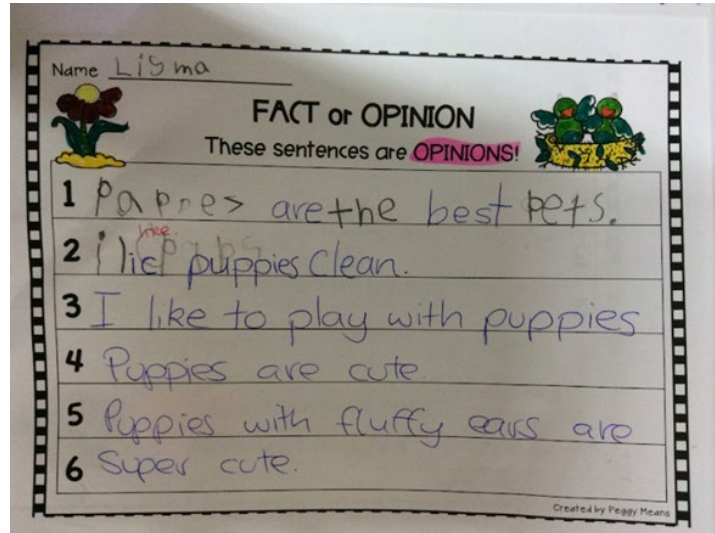 Name Ligma
FACT or OPINION
These sentences are OPINIONS!
1 Pappes are the best pets.
2 i lic puppies Clean.
like.
3 I like to play with puppies
4 Puppies are cute.
5 Puppies with fluffy ears are
6 Super cute.
Created by Peggy Means